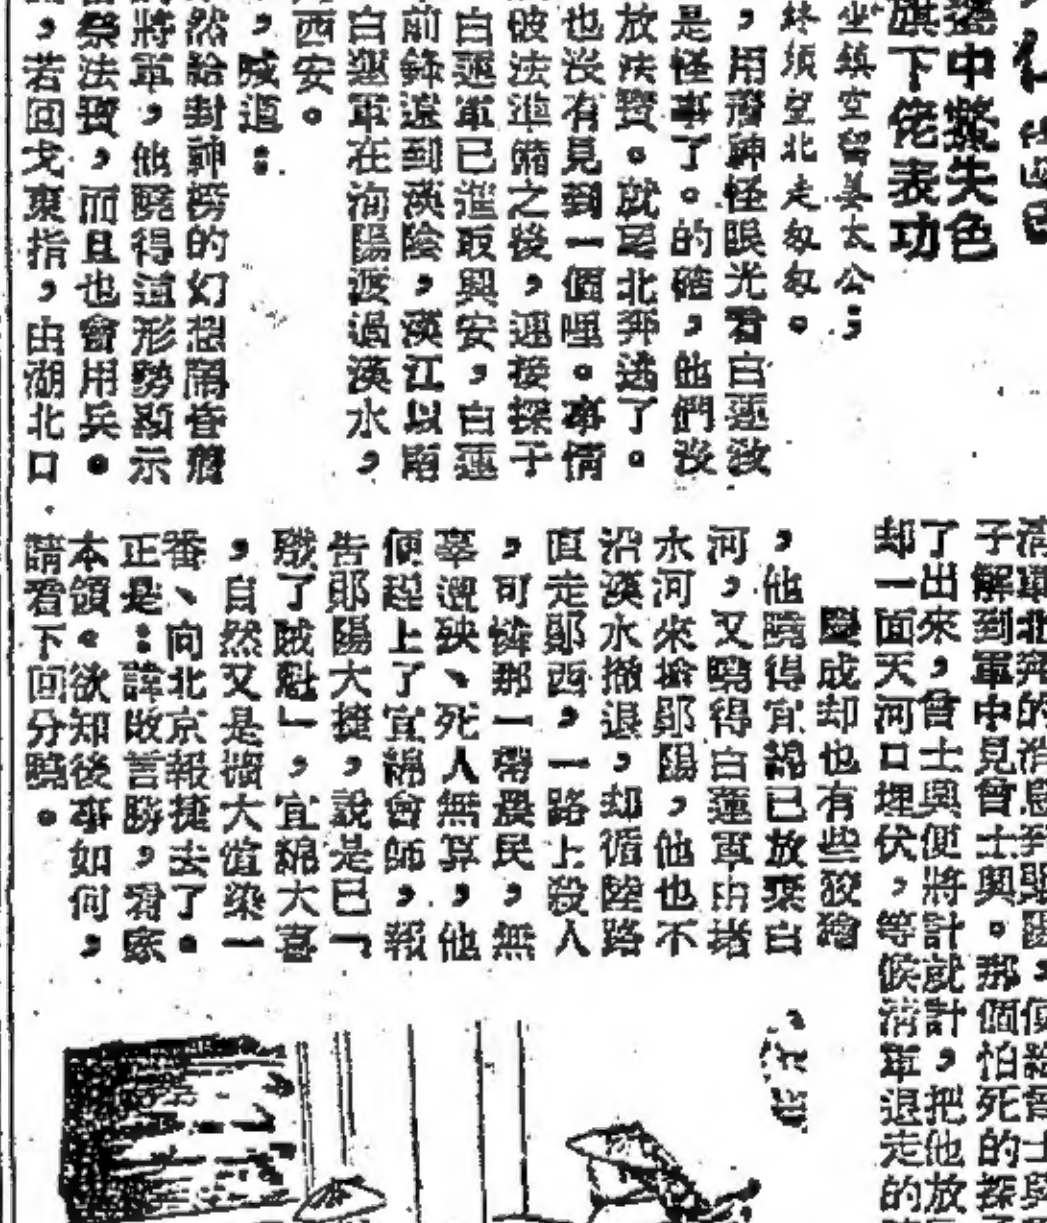 甕中鱉失色
旗下佬表功
坐鎮空留姜太公；
終須望北走匆匆。
，用神怪眼光看白蓮教
是怪事了。的確，他們沒
放法寶。就望北奔逃了。
也沒有見到一個哩。事情
破法準備之後，連接探子
白蓮軍已進取興安，白蓮
前鋒還到漢陰，漢江以南
白蓮軍在洵陽渡過漢水，
西安。
，喊道：
然給封神榜的幻想鬧昏
將軍，他曉得這形勢顯示
祭法寶，而且也會用兵。
，若回戈東指，由湖北口
清軍北奔的消息到，便
子解到軍中見曾士興。那個怕死的探
了出來，曾士興便將計就計，把他放
却一面天河口埋伏，等候清軍退走的
慶成却也有些狡獪
，他曉得宜綿已放棄白
河，又曉得白蓮軍由
水河來搶鄖陽，他也不
沿漢水撤退，却循陸路
直走鄖西，一路上殺人
，可憐那一帶農民，無
辜遭殃、死人無算，他
便趕上了宜綿會師，報
告鄖陽大捷，說是已「
殲了賊魁」，宜綿大喜
，自然又是擴大渲染一
番、向北京報捷去了。
正是：諱敗言勝，看家
本領。欲知後事如何，
請看下回分曉。